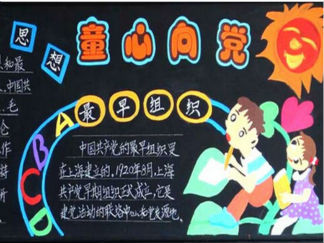 童心向党
思想
想和最
、中国共
、毛
仑
作
科
研
A
B
C
D
最早组织
中国共产党的最早组织是
在上海建立的,1920年8月,上海
共产党早期组织正式成立,它是
建党活动的联络中心